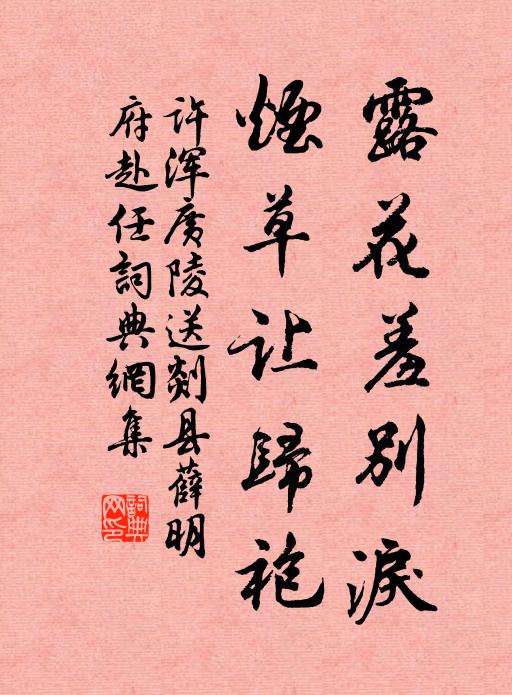 露花羞别淚
煙草让歸袍
许浑广陵送剡县薛明
府赴任詞典網集
詞典
网印